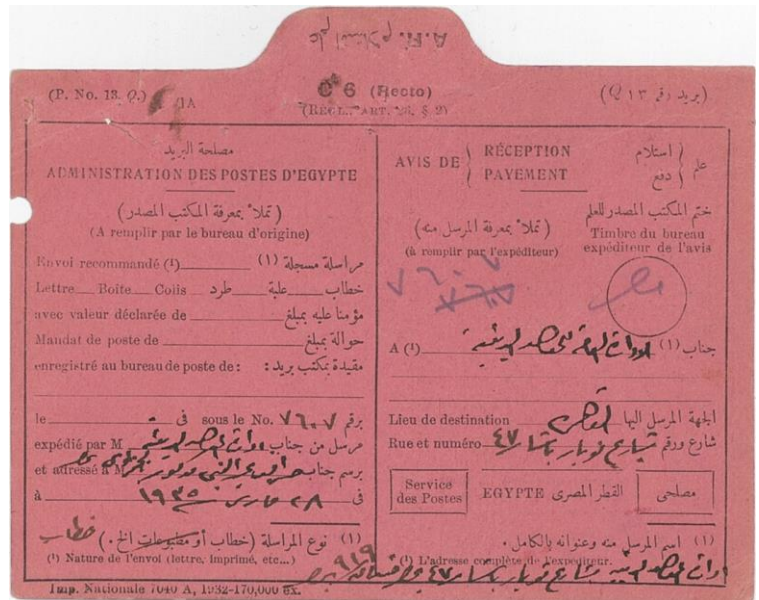 A.R. علم استلام
(P. No. 13. Q.)
1A
C 6 (Recto)
(بريد رقم ١٣ Q)
(REGL. ART. 53, § 2)
مصلحة البريد
ADMINISTRATION DES POSTES D'EGYPTE
(تملأ بمعرفة المكتب المصدر)
(A remplir par le bureau d'origine)
Envoi recommandé (1) مراسلة مسجلة (١)
Lettre Boîte Colis خطاب علبة طرد
avec valeur déclarée de مؤمنا عليه بمبلغ
Mandat de poste de حوالة بمبلغ
enregistré au bureau de poste de: مقيدة بمكتب بريد:
le فى sous le No. ٧٦٠٧ برقم
expédié par M مرسل من جناب
et adressé à M برسم جناب
à فى ٢٨ مارس ١٩٣٥
(١) نوع المراسلة (خطاب أو مطبوعات الخ.) خطاب
(1) Nature de l'envoi (lettre, imprimé, etc...)
Imp. Nationale 7040 A, 1932-170,000 ex.
AVIS DE RÉCEPTION PAYEMENT علم استلام دفع
(تملأ بمعرفة المرسل منه)
(à remplir par l'expéditeur)
ختم المكتب المصدر للعلم
Timbre du bureau expéditeur de l'avis
٧٦٠٧
٧٦٠٧
مصر
A (1) جناب (١)
Lieu de destination الجهة المرسل اليها
Rue et numéro شارع ورقم شارع نوبار باشا ٤٧
Service des Postes EGYPTE القطر المصرى مصلحى
(١) اسم المرسل منه وعنوانه بالكامل.
(1) L'adresse complète de l'expéditeur.
شارع نوبار باشا ٤٧ بمصر